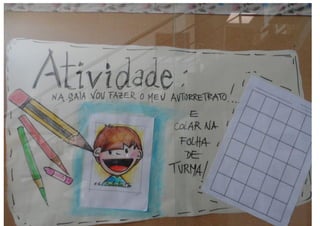 Atividade:
NA SALA VOU FAZER O MEU AUTORRETRATO!...
E
COLAR NA
FOLHA
DE
TURMA!